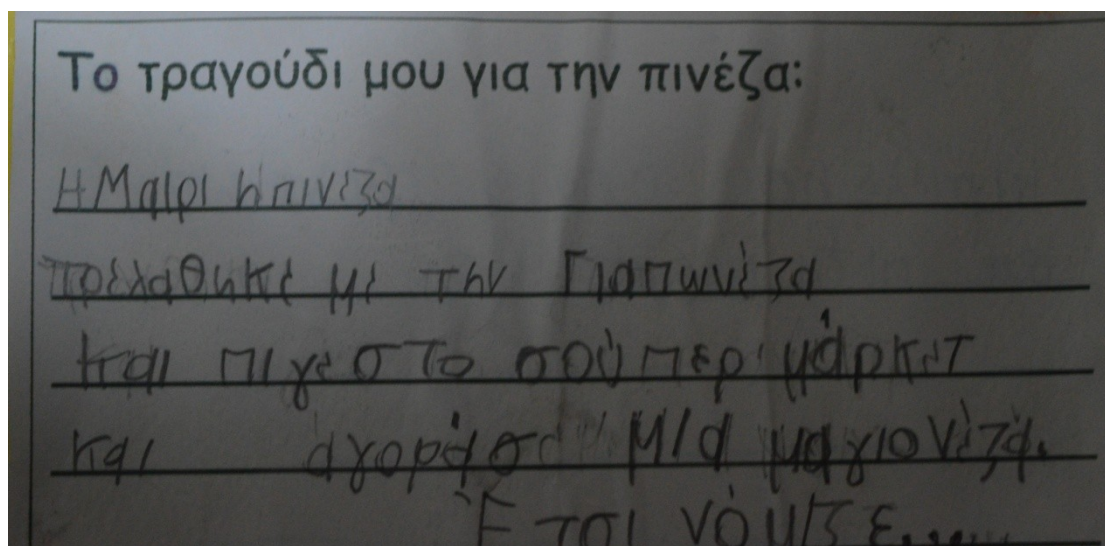 Το τραγούδι μου για την πινέζα:
Η Μαιρι η πινέζα
τρελαθηκε με την Γιαπωνέζα
και πιγε στο σούπερ μάρκετ
και αγοράσε μια μαγιονέζα.
Έτσι νόμιζε......